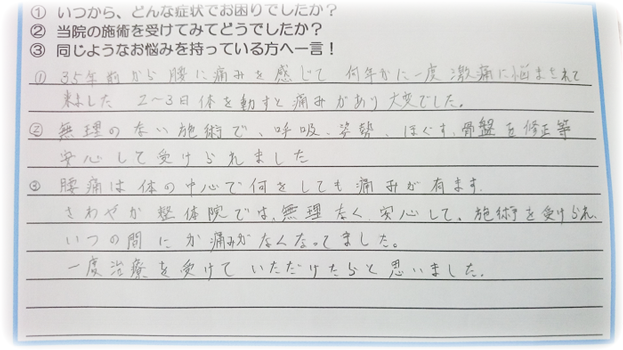 ① いつから、どんな症状でお困りでしたか？
② 当院の施術を受けてみてどうでしたか？
③ 同じようなお悩みを持っている方へ一言！
① 35年前から腰に痛みを感じて 何年かに一度 激痛に悩まされて
来ました 2〜3日体を動すと痛みがあり大変でした。
② 無理のない施術で、呼吸、姿勢、ほぐす、骨盤を修正等
安心して受けられました
③ 腰痛は体の中心で何をしても痛みが有ます.
さわやか整体院では、無理なく、安心して。施術を受けられ、
いつの間にか痛みがなくなってました。
一度治療を受けていただけたらと思いました.